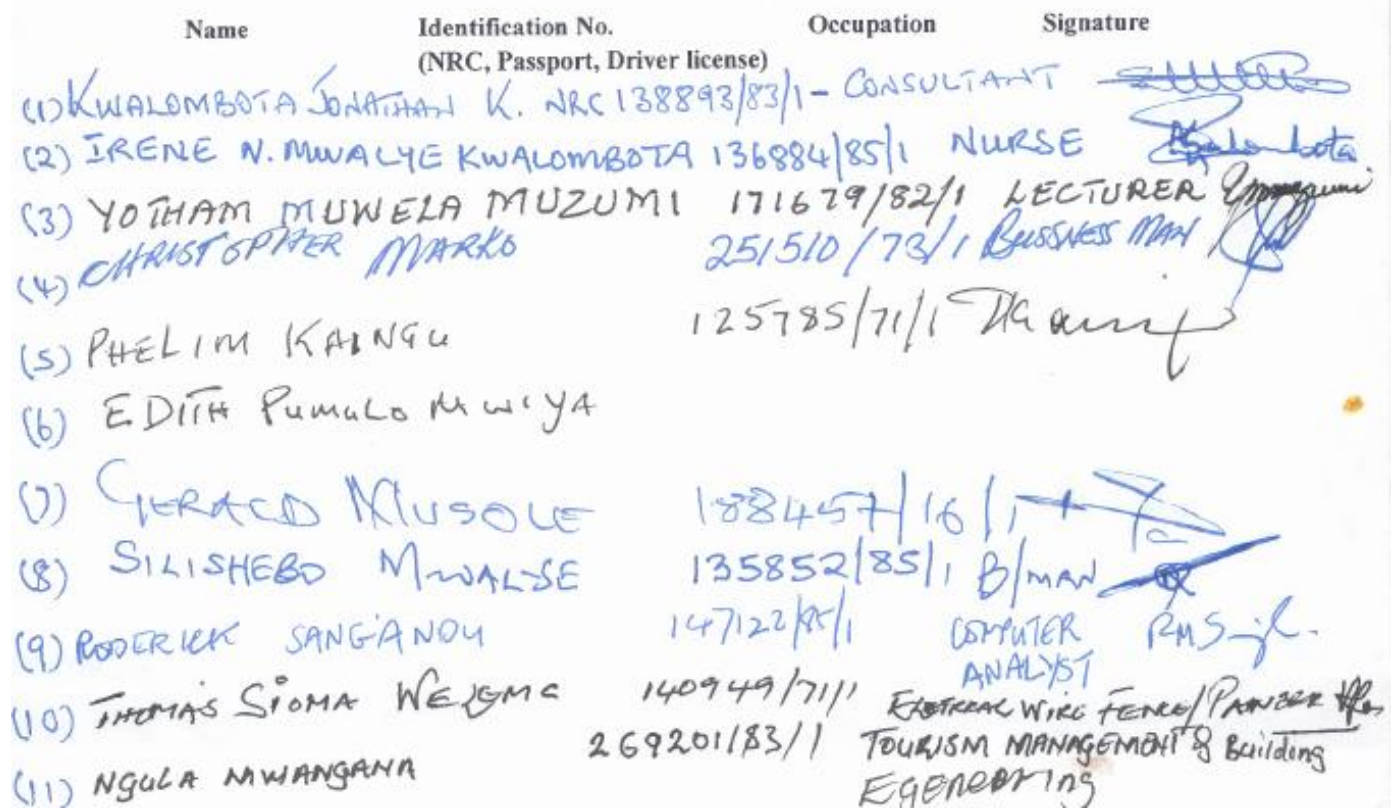 Name Identification No. Occupation Signature
(NRC, Passport, Driver license)
(1) KWALOMBOTA JONATHAN K. NRC 138893/83/1 - CONSULTANT
(2) IRENE N. MWALYE KWALOMBOTA 136884/85/1 NURSE
(3) YOTHAM MUWELA MUZUMI 171679/82/1 LECTURER
(4) CHRISTOPHER MARKO 251510/73/1 BUSSNESS MAN
(5) PHELIM KAINGU 125785/71/1
(6) EDITH PUMULO MWIYA
(7) GERALD MUSOLE 188457/16/1
(8) SILISHEBO MWALYE 135852/85/1 B/MAN
(9) RODERICK SANGANDU 147122/85/1 COMPUTER
ANALYST
(10) THOMAS SIOMA 140949/71/1 WIRE FENCE/
(11) NGULA MWANGANA 269201/83/1 TOURISM MANAGEMENT & Building
EGENEERING